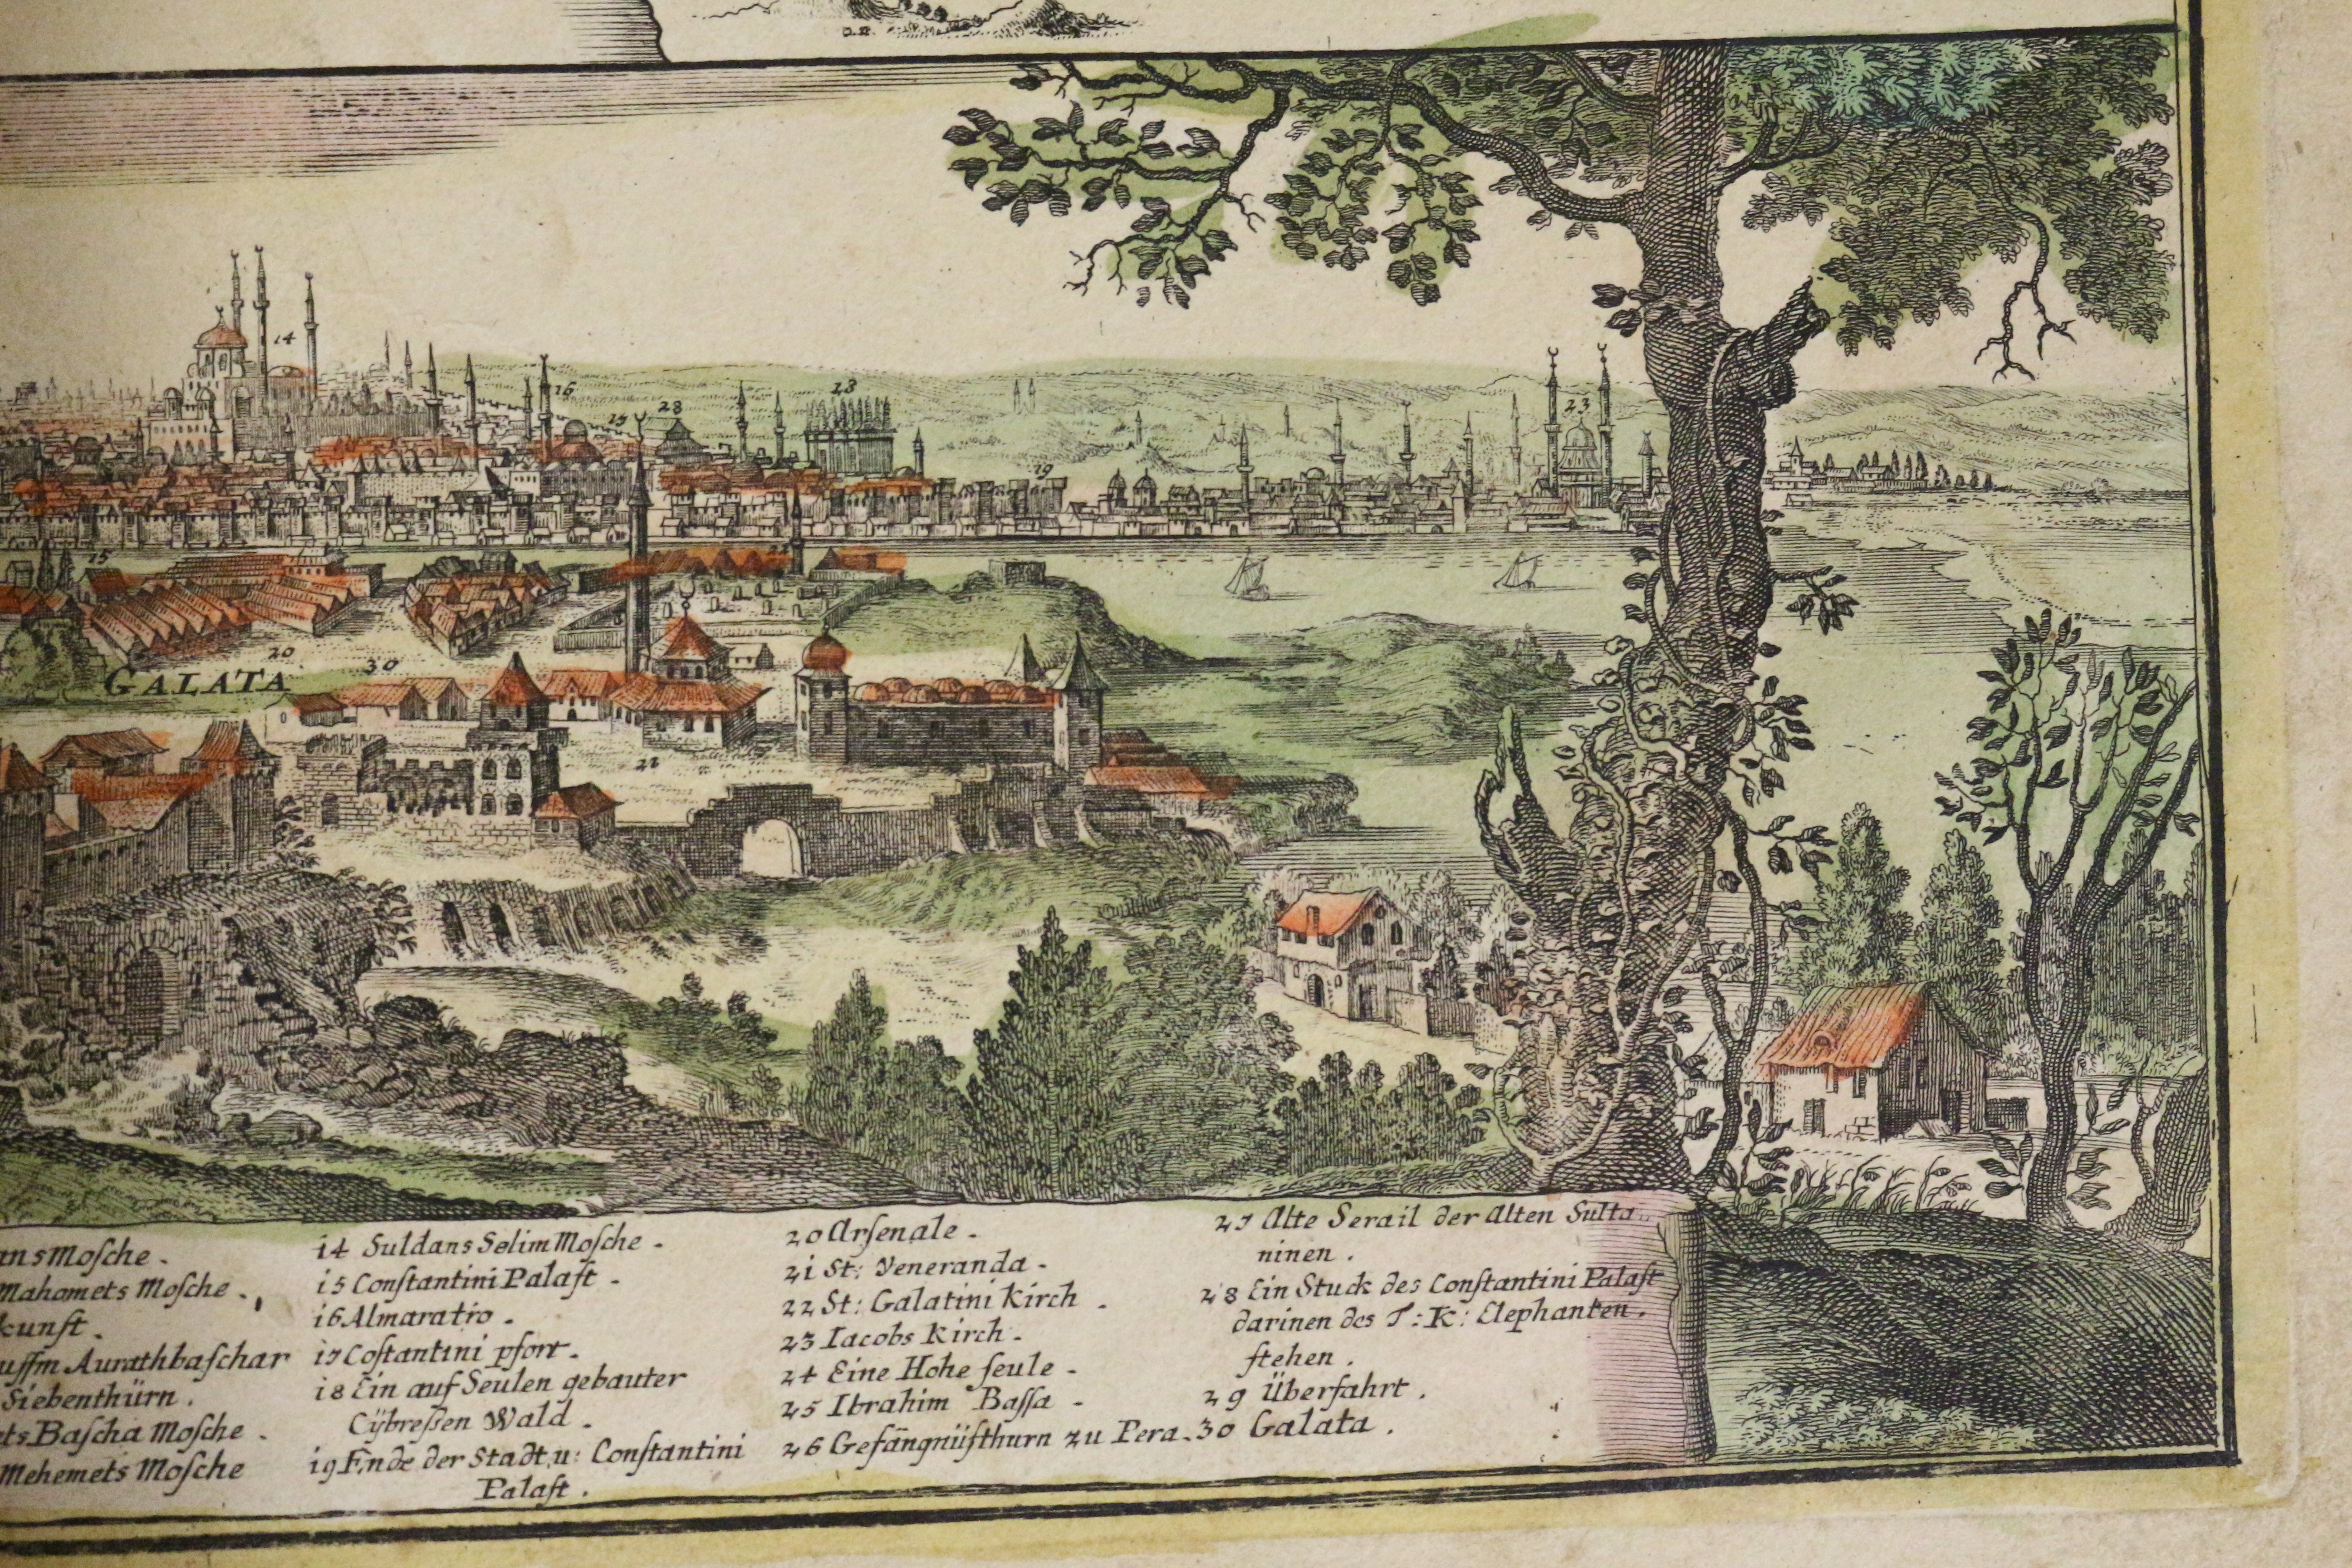 14
16
17
28
18
19
23
15
22
20
GALATA
30
21
Mosche.
Mahomets Mosche.
kunst.
Aurathbaschar
Siebenthürn.
Bascha Mosche.
Mehemets Mosche
14 Suldans Selim Mosche.
15 Constantini Palast.
16 Almaratro.
17 Costantini pfort.
18 Ein auf Seulen gebauter
Cÿbreßen Wald.
19 Ende der Stadt u: Constantini
Palast.
20 Arsenale.
21 St: Veneranda.
22 St: Galatini Kirch.
23 Iacobs Kirch.
24 Eine Hohe seule.
25 Ibrahim Bassa.
26 Gefängnüsthurn zu Pera.
27 Alte Serail der Alten Sulta
ninen.
28 Ein Stuck des Constantini Palast
darinen des T: K: Elephanten.
stehen.
29 Überfahrt.
30 Galata.